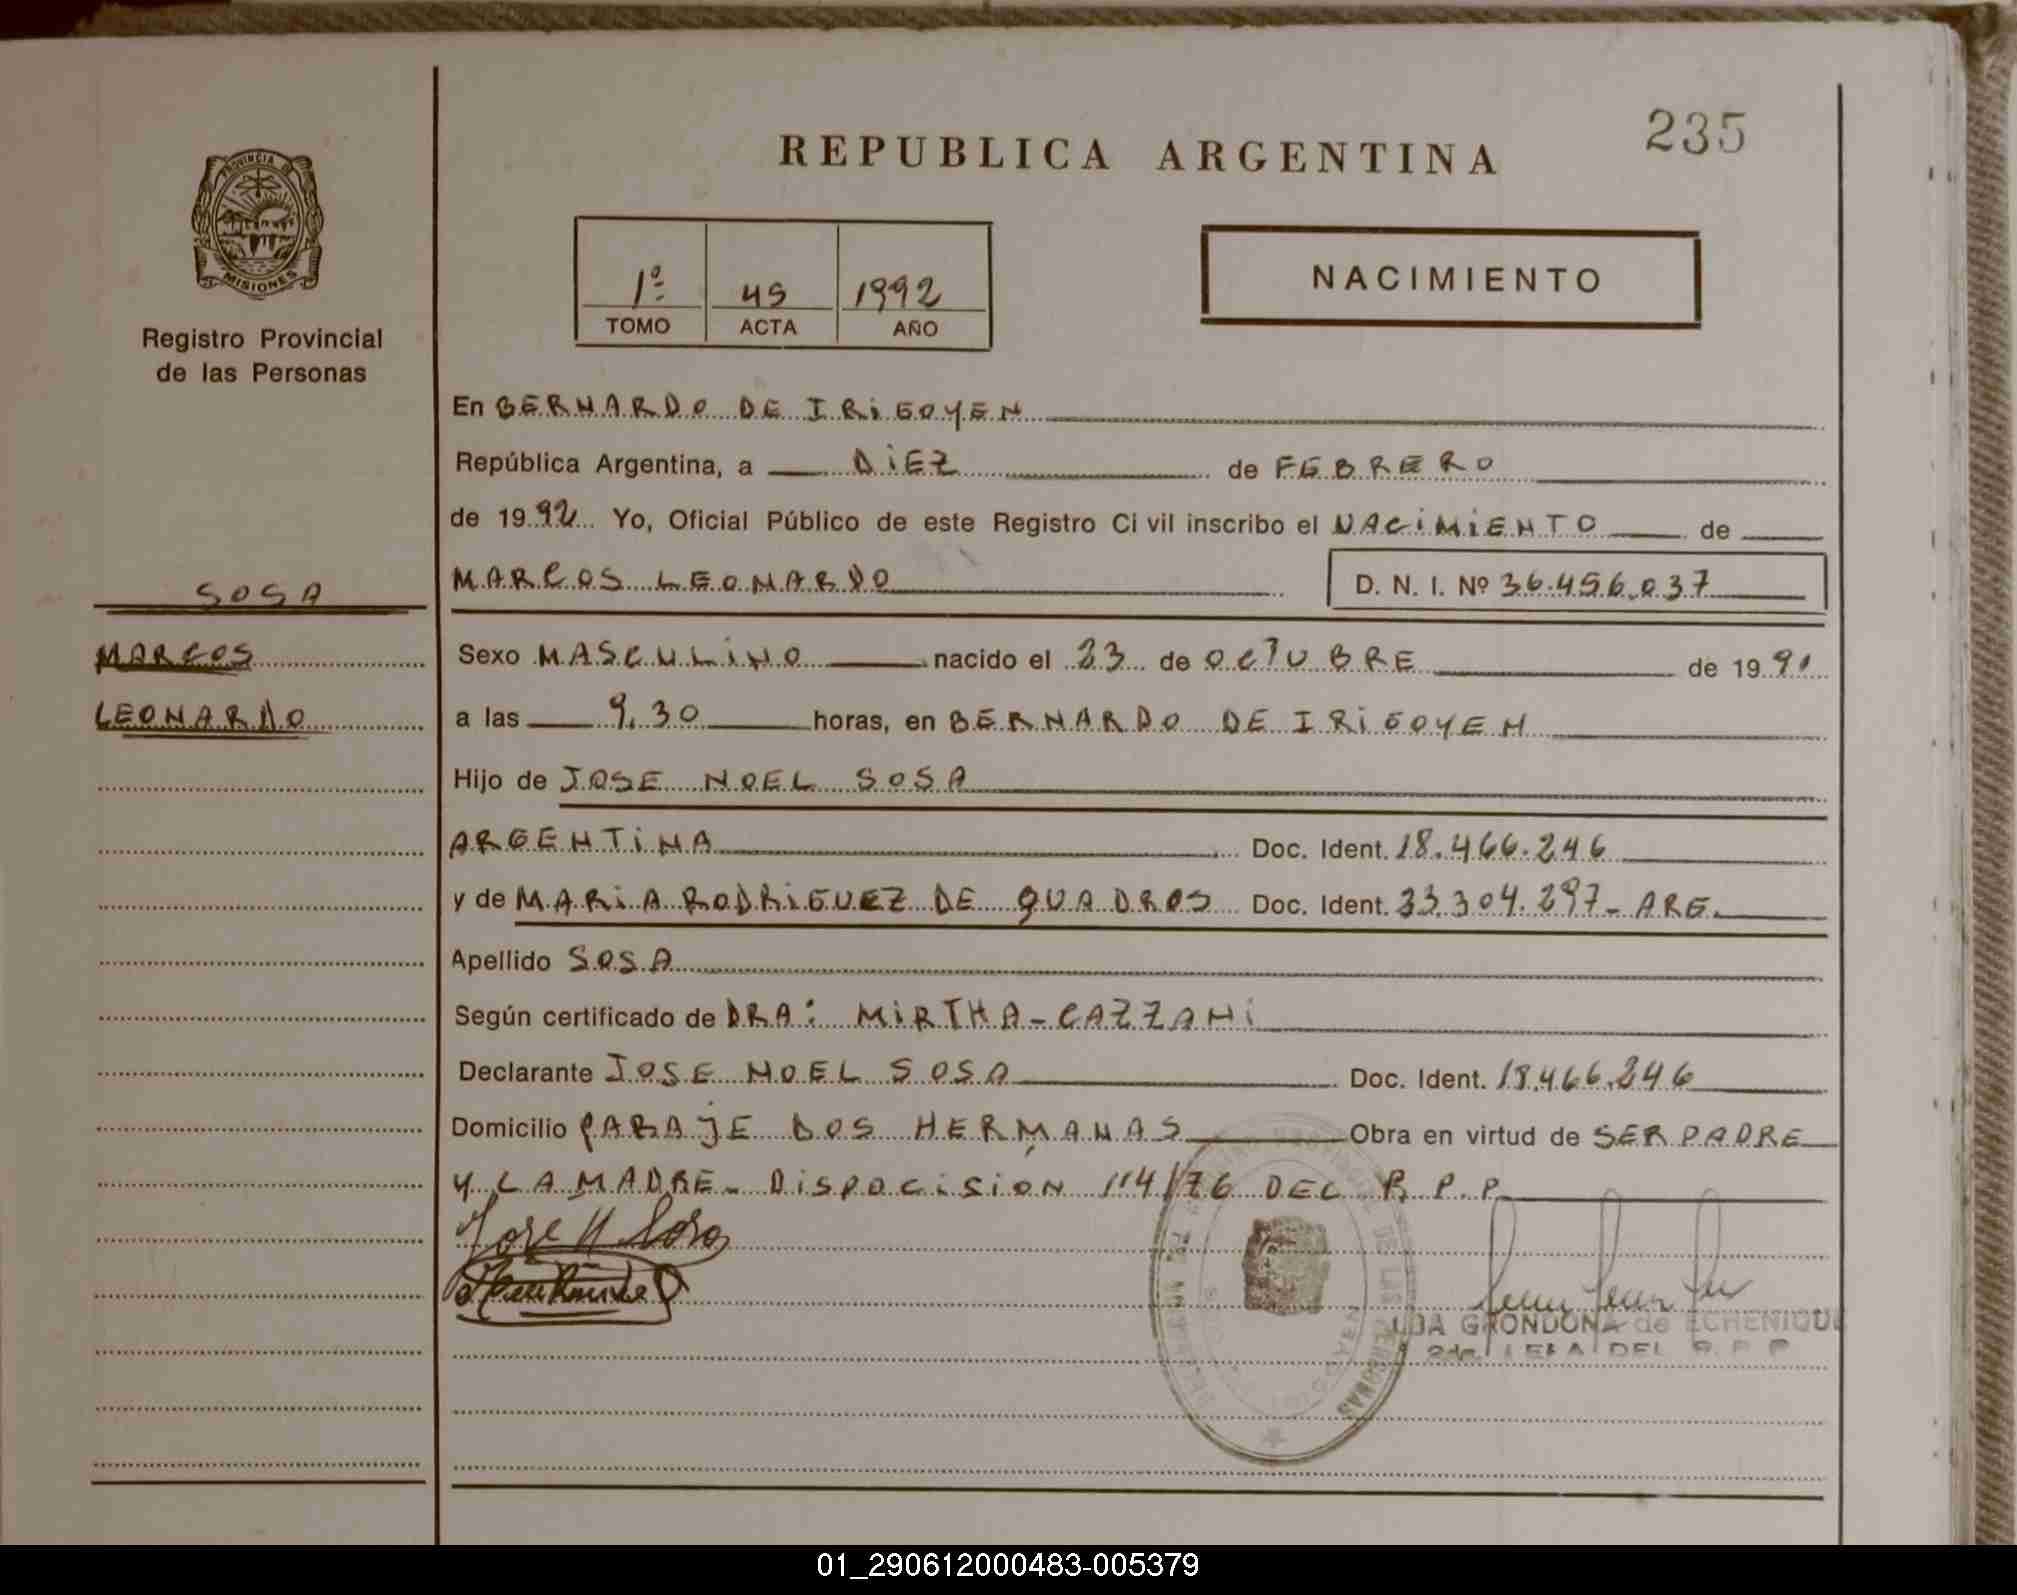 235
REPUBLICA ARGENTINA
PROVINCIA DE
MISIONES
Registro Provincial
de las Personas
1º 45 1992
TOMO ACTA AÑO
NACIMIENTO
En BERNARDO DE IRIGOYEN
República Argentina, a DIEZ de FEBRERO
de 1992 Yo, Oficial Público de este Registro Civil inscribo el NACIMIENTO de
SOSA
MARCOS LEONARDO D. N. I. Nº 36.456.037
MARCOS
Sexo MASCULINO nacido el 23 de OCTUBRE de 1991
LEONARDO
a las 9.30 horas, en BERNARDO DE IRIGOYEN
Hijo de JOSE NOEL SOSA
ARGENTINA Doc. Ident. 18.466.246
y de MARIA RODRIGUEZ DE QUADROS Doc. Ident. 33.304.297- ARG.
Apellido SOSA
Según certificado de DRA: MIRTHA-CAZZANI
Declarante JOSE NOEL SOSA Doc. Ident. 18.466.246
Domicilio PARAJE DOS HERMANAS Obra en virtud de SER PADRE
Y LA MADRE- DISPOCISION 114/76 DEL R.P.P.
Jose N Sosa
GRONDONA de ECHENIQUE
DEL R.P.P
DE LAS PERSONAS
01_290612000483-005379